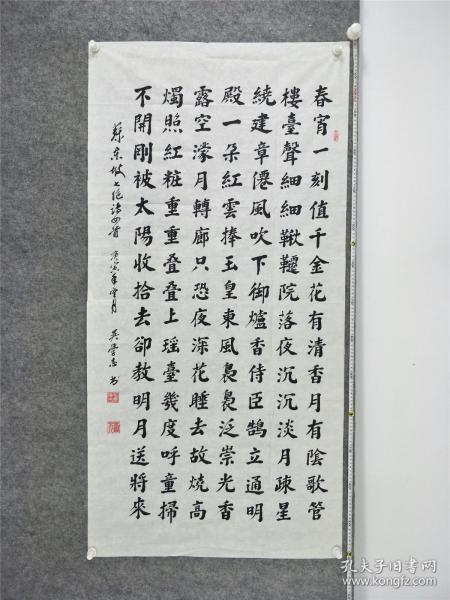 春宵一刻值千金花有清香月有陰歌管
樓臺聲細細鞦韆院落夜沉沉淡月疎星
繞建章僊風吹下御爐香侍臣鵠立通明
殿一朵紅雲捧玉皇東風裊裊泛崇光香
露空濛月轉廊只恐夜深花睡去故燒高
燭照紅粧重重叠叠上瑶臺幾度呼童掃
不開剛被太陽收拾去卻教明月送將來
蘇東坡七絕詩四首
书
孔夫子旧书网
www.kongfz.com